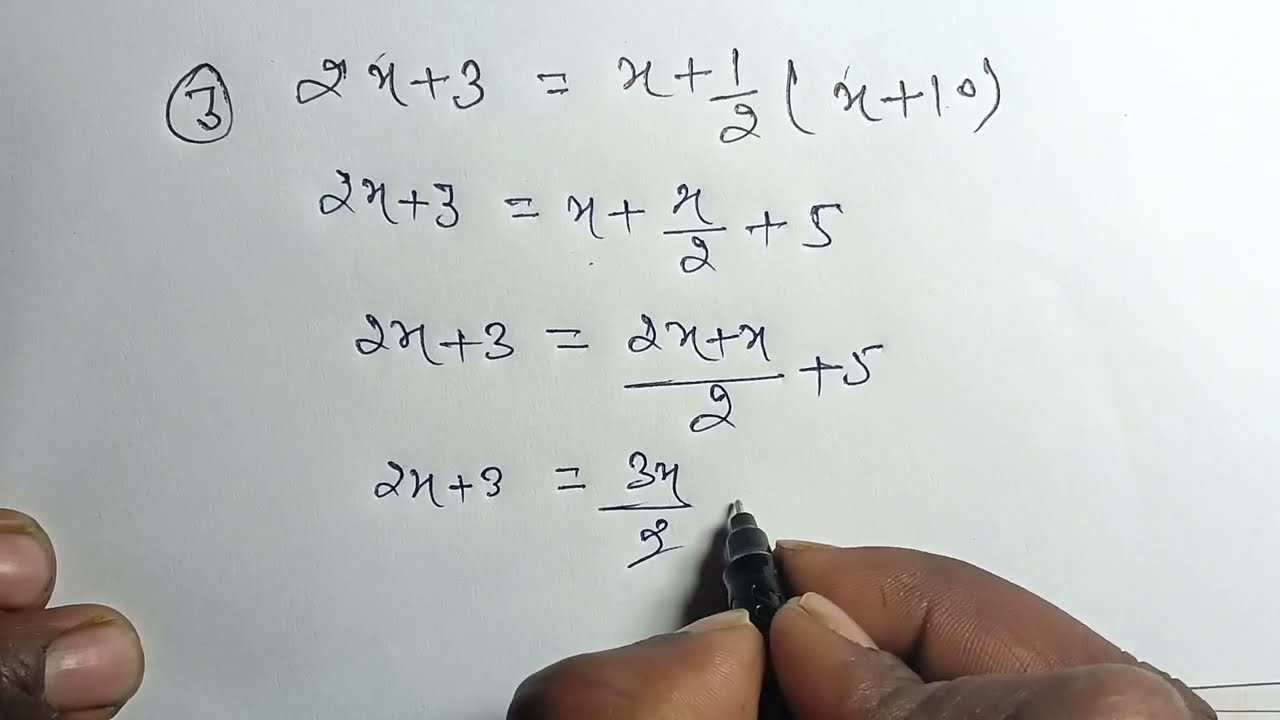 ③ 2x+3 = x+1/2(x+10)
2x+3 = x+x/2+5
2x+3 = (2x+x)/2+5
2x+3 = 3x/2